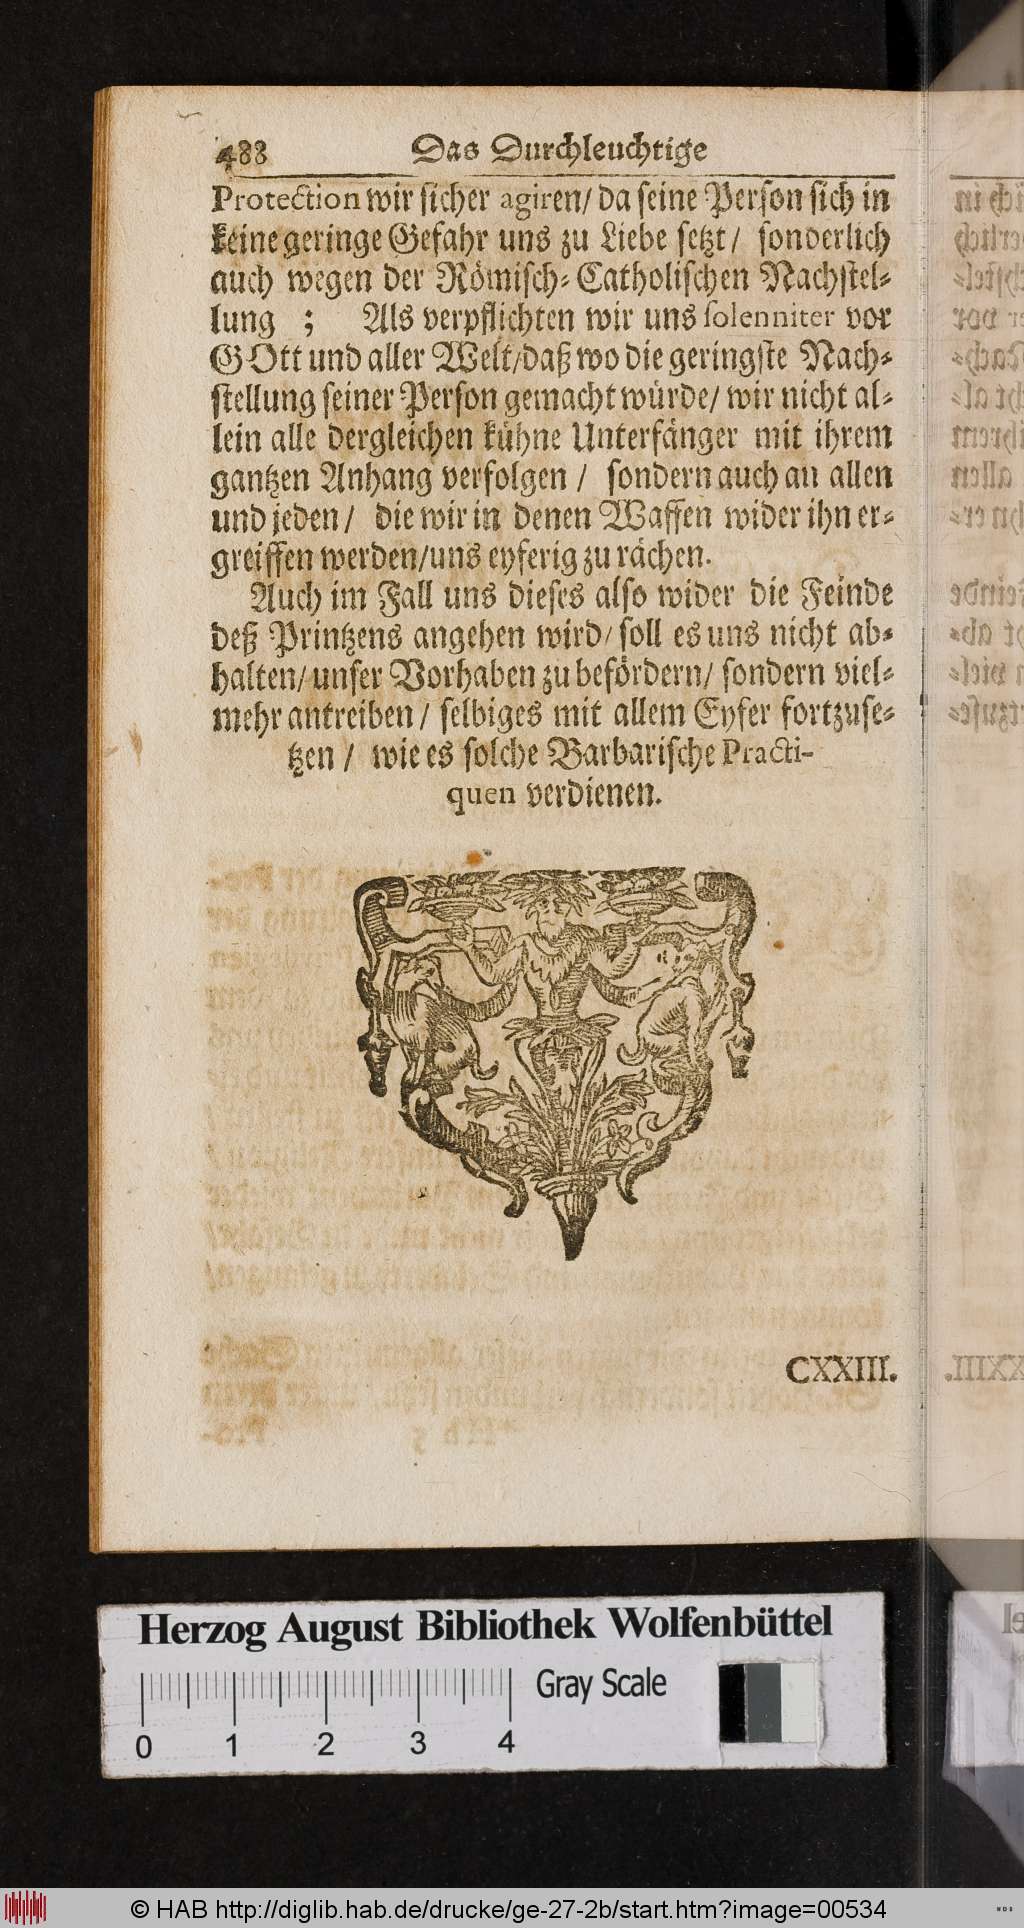 488 Das Durchleuchtige
Protection wir sicher agiren/ da seine Person sich in
keine geringe Gefahr uns zu Liebe setzt/ sonderlich
auch wegen der Römisch-Catholischen Nachstel-
lung ; Als verpflichten wir uns solenniter vor
GOtt und aller Welt/daß wo die geringste Nach-
stellung seiner Person gemacht würde/ wir nicht al-
lein alle dergleichen kühne Unterfänger mit ihrem
gantzen Anhang verfolgen / sondern auch an allen
und jeden/ die wir in denen Waffen wider ihn er-
greiffen werden/uns eyferig zu rächen.
Auch im Fall uns dieses also wider die Feinde
deß Printzens angehen wird/ soll es uns nicht ab-
halten/ unser Vorhaben zu befördern/ sondern viel-
mehr antreiben/ selbiges mit allem Eyfer fortzuse-
tzen / wie es solche Barbarische Practi-
quen verdienen.
CXXIII.
Herzog August Bibliothek Wolfenbüttel
Gray Scale
0 1 2 3 4
© HAB http://diglib.hab.de/drucke/ge-27-2b/start.htm?image=00534